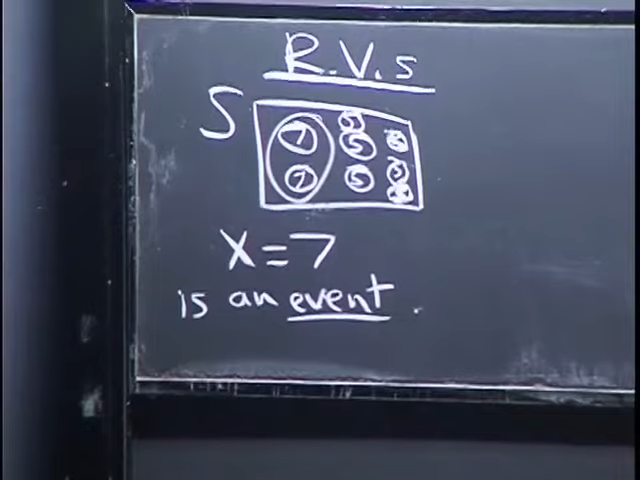 R.V.s
S
7 5
5
7 5
X=7
is an event.